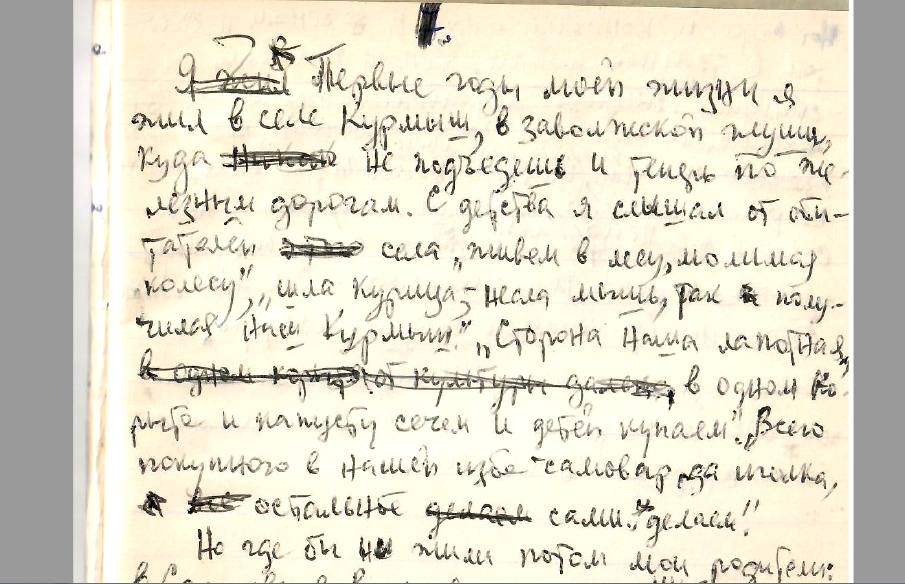 1.
Я жил Первые годы моей жизни я
жил в селе Курмыш, в заволжской глуши,
куда не подъедешь и теперь по же-
лезным дорогам. С детства я слышал от оби-
тателей села „живем в лесу, молимся
колесу", „шла курица, несла мышь, так полу-
чился наш Курмыш". „Сторона наша лапотная,
в одном от культуры далеко, в одном ко-
рыте и капусту сечем и детей купаем". „Всего
покупного в нашей избе самовар да иголка,
а всё остальное делаем сами делаем"!
Но где бы ни жили потом мои родители: